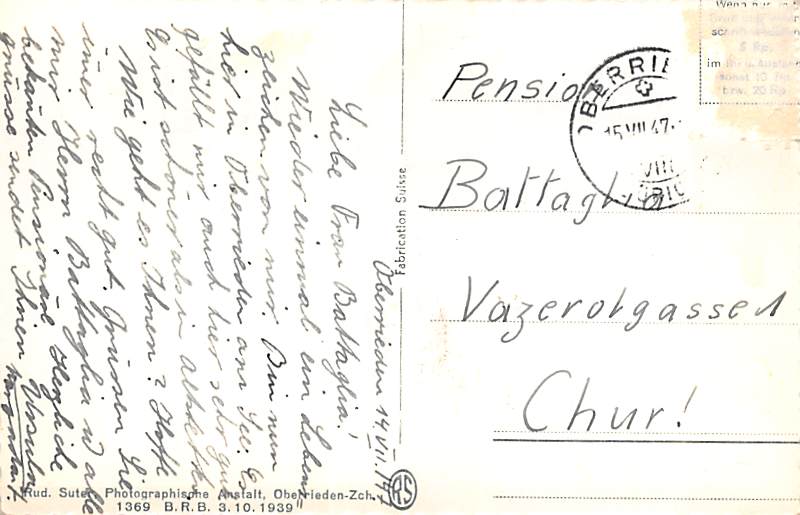 Oberrieden 14. VII. 47
Liebe Frau Battaglia!
Wieder einmal ein Lebens"
zeichen von mir. Bin nun
hier in Oberrieden am See. Es
gefällt mir auch hier sehr gut
Es ist schöner als in
Wie geht es Ihnen? Hoffe
imer recht gut. Grüssen Sie
mir Herrn Battaglia u alle
bekanten Pensionäre Herzliche
grüsse sendet Ihnen Ursula
Fabrication Suisse
RS
Rud. Suter, Photographische Anstalt, Oberrieden-Zch.
1369 B.R.B. 3.10.1939
Wenn nur
5 Rp.
im
sonst 10 Rp.
bzw. 20 Rp.
OBERRIE
15.VII.47.
VIII
ÜRIC
Pension
Battaglia
Vazerolgasse 1
Chur!